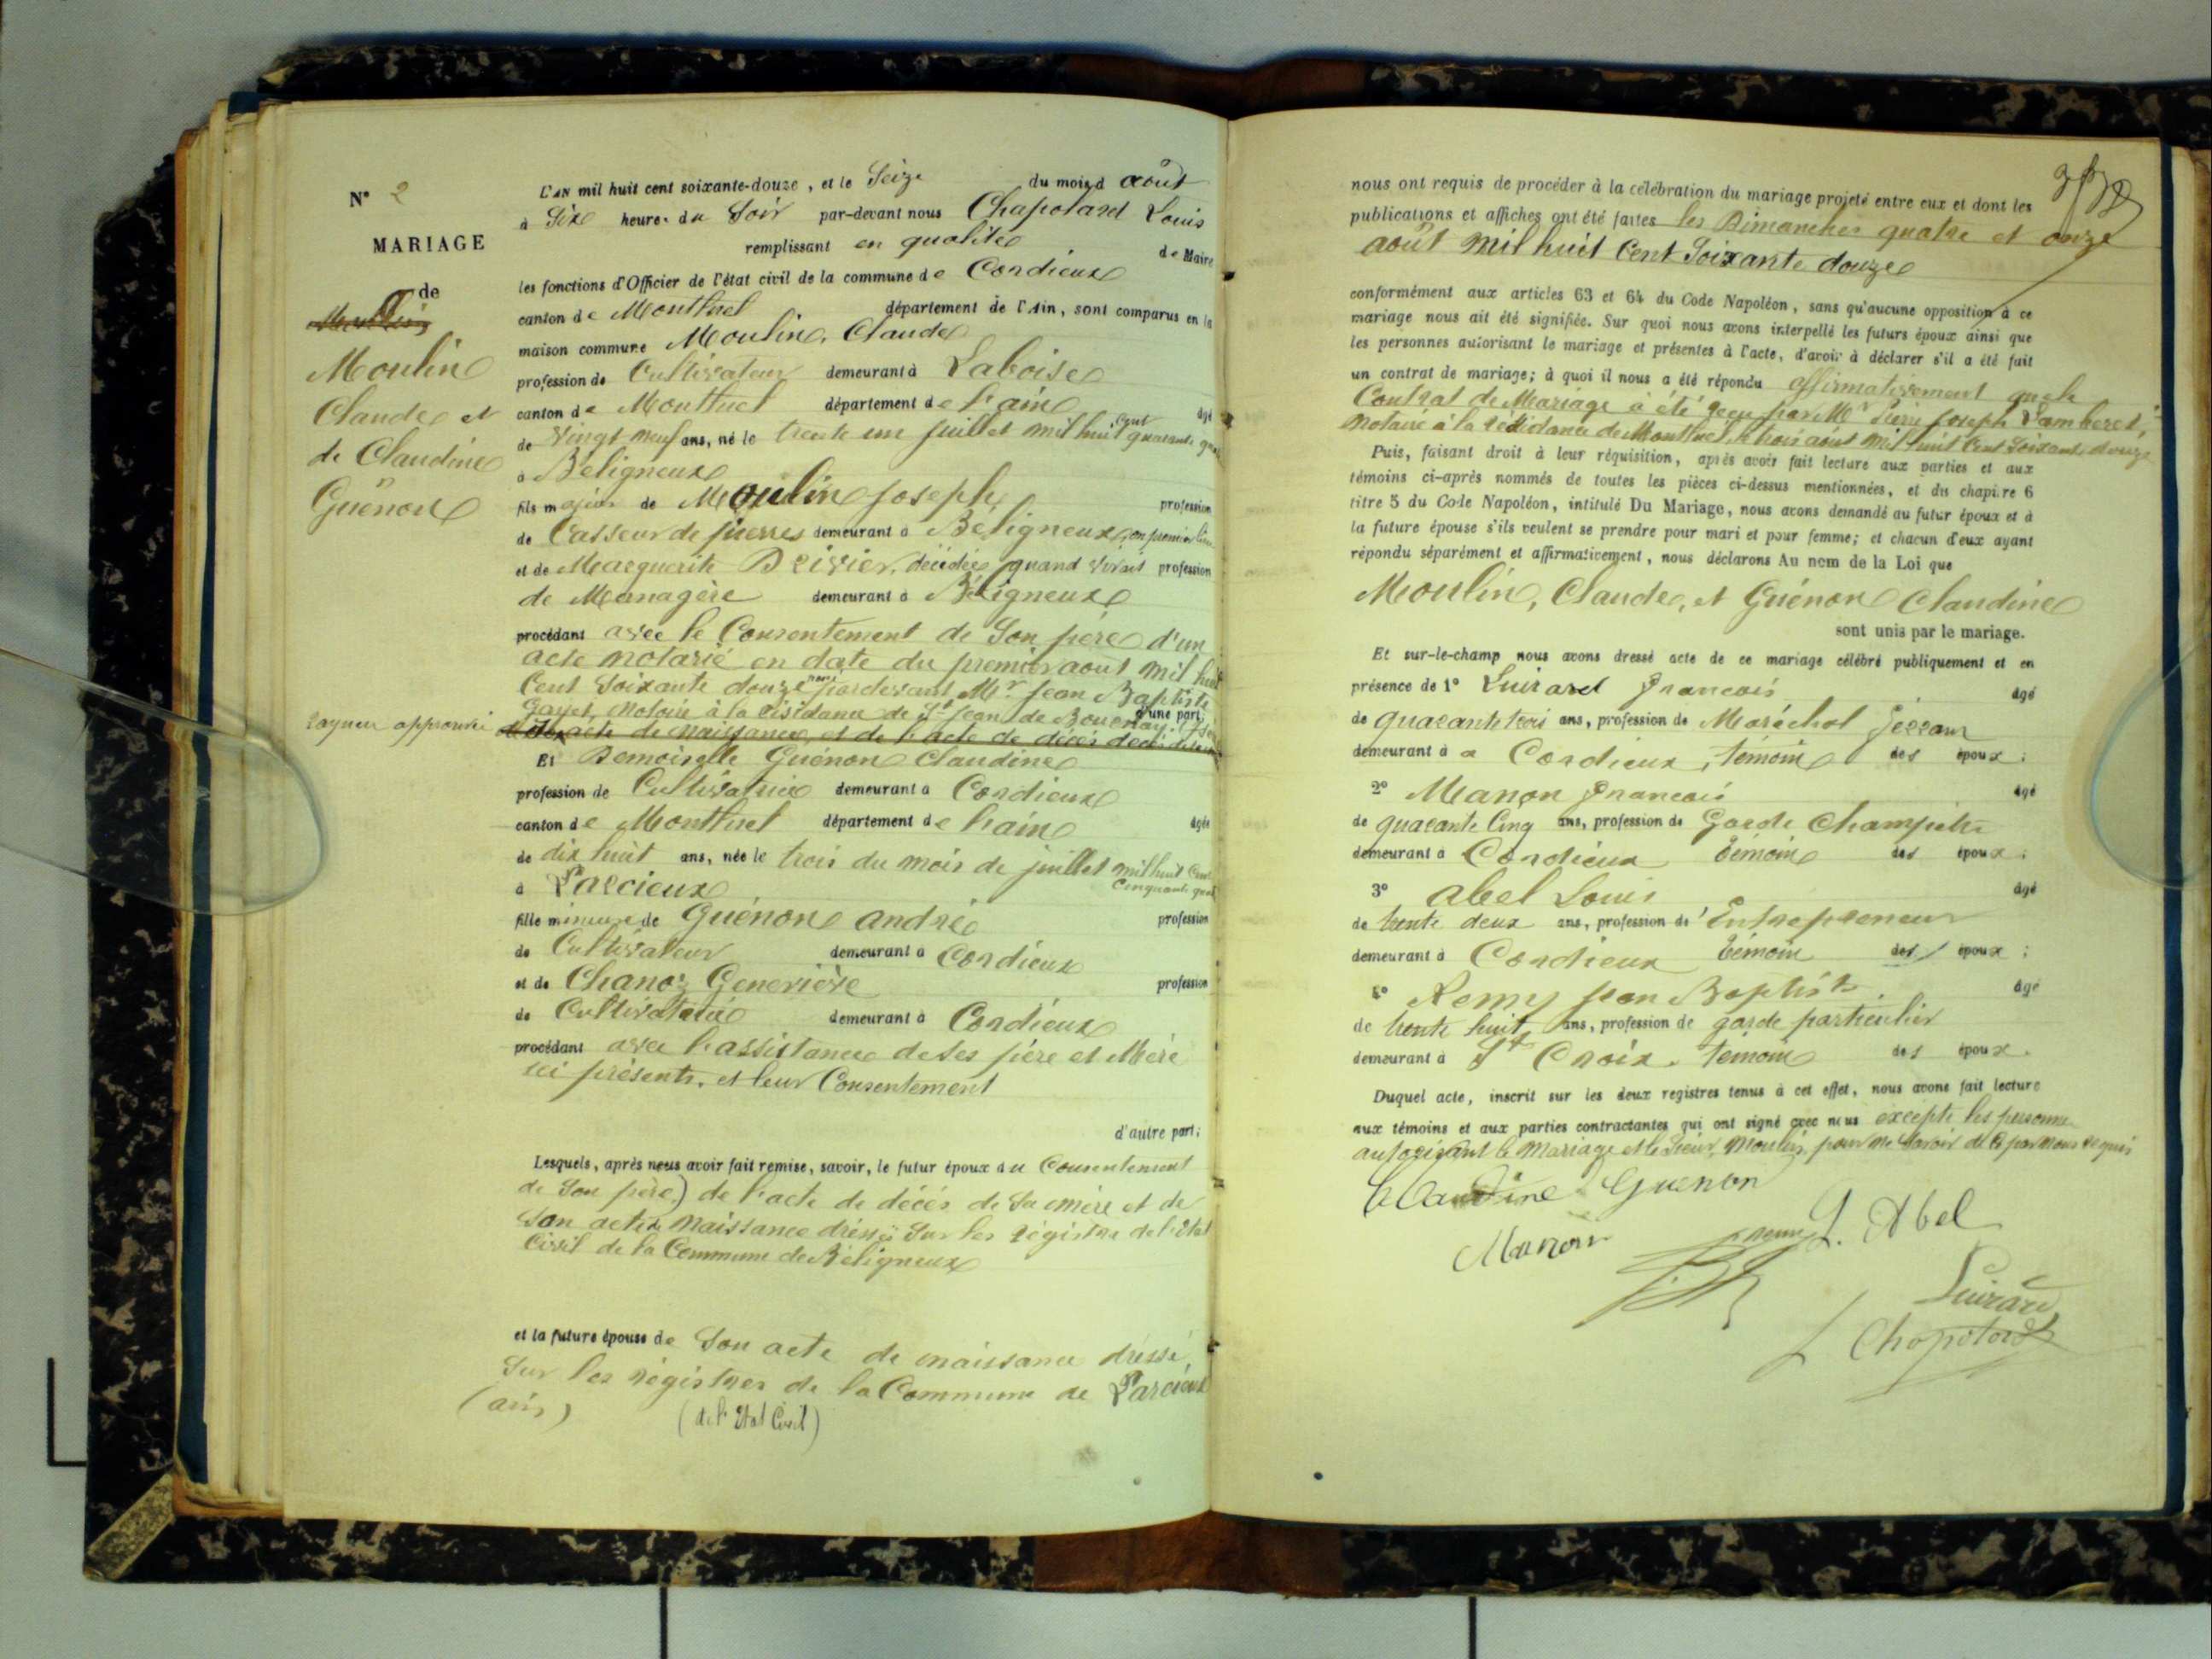 N° 2
MARIAGE
de
Moulin
Claude et
de Claudine
Guénon
L'AN mil huit cent soixante-douze, et le Seize du mois d août
à Six heures du Soir par-devant nous Chapolard Louis
remplissant en qualité de Maire
les fonctions d'Officier de l'état civil de la commune de Cordieux
canton de Montluel département de l'Ain, sont comparus en la
maison commune Moulin, Claude
profession de Cultivateur demeurant à Laboise
canton de Montluel département de l'ain âgé
de Vingt neuf ans, né le trente un juillet mil huit cent quarante
à Béligneux
fils majeur de Moulin Joseph profession
de Casseur de pierres demeurant à Béligneux, en premier lieu
et de Marguerite décédée quand vivait profession
de Ménagère demeurant à Béligneux
procédant avec le Consentement de Son père d'un
acte notarié en date du premier aout mil huit
Cent Soixante douze pardevant Mr Jean Baptiste
Gayet, notaire à la résidance de St Jean de Bournay. d'une part;
rayure approuvée acte de naissance, et de l'acte de décès
Et Demoiselle Guénon Claudine
profession de Cultivatrice demeurant à Cordieux
canton de Montluel département de l'ain âgée
de dix huit ans, née le trois du mois de juillet mil huit Cent
Cinquante quatre
à Parcieux
fille mineure de Guénon andré profession
de Cultivateur demeurant à Cordieux
et de Chanoz Geneviève profession
de Cultivatrice demeurant à Cordieux
procédant avec l'assistance de ses père et Mère
ici présents, et leur Consentement
d'autre part;
Lesquels, après nous avoir fait remise, savoir, le futur époux du Consentement
de Son père) de l'acte de décès de Sa mère et de
Son acte de naissance dressés Sur les régistre de l'Etat
Civil de la Commune de Béligneux
et la future épouse de Son acte de naissance dressé,
Sur les régistres de la Commune de Parcieux
(ain) (de l'Etat Civil)
nous ont requis de procéder à la célébration du mariage projeté entre eux et dont les
publications et affiches ont été faites les Dimanches quatre et onze
août mil huit Cent Soixante douze
conformément aux articles 63 et 64 du Code Napoléon, sans qu'aucune opposition à ce
mariage nous ait été signifiée. Sur quoi nous avons interpellé les futurs époux ainsi que
les personnes autorisant le mariage et présentes à l'acte, d'avoir à déclarer s'il a été fait
un contrat de mariage; à quoi il nous a été répondu affirmativement que le
Contrat de Mariage à été reçu par Mr Pierre Joseph Lambert,
notaire à la résidance de Montluel le trois août mil huit Cent Soixante douze
Puis, faisant droit à leur réquisition, après avoir fait lecture aux parties et aux
témoins ci-après nommés de toutes les pièces ci-dessus mentionnées, et du chapitre 6
titre 5 du Code Napoléon, intitulé Du Mariage, nous avons demandé au futur époux et à
la future épouse s'ils veulent se prendre pour mari et pour femme; et chacun d'eux ayant
répondu séparément et affirmativement, nous déclarons Au nom de la Loi que
Moulin, Claude, et Guénon Claudine
sont unis par le mariage.
Et sur-le-champ nous avons dressé acte de ce mariage célébré publiquement et en
présence de 1° Luizard François âgé
de quarante trois ans, profession de Maréchal ferrant
demeurant à a Cordieux, témoin des époux;
2° Manon François âgé
de quarante Cinq ans, profession de Garde Champêtre
demeurant à Cordieux témoin des époux;
3° abel Louis âgé
de trente deux ans, profession d' Entrepreneur
demeurant à Cordieux témoin des époux;
4° Remy Jean Baptiste âgé
de trente huit ans, profession de garde particulier
demeurant à Ste Croix. témoin des époux.
Duquel acte, inscrit sur les deux registres tenus à cet effet, nous avons fait lecture
aux témoins et aux parties contractantes qui ont signé avec nous excepté les personne
autorisant le Mariage et le Sieur Moulin, pour ne Savoir de ce par nous requis
Claudine Guenon
Manon remy L. Abel
Luizard
Chapolard